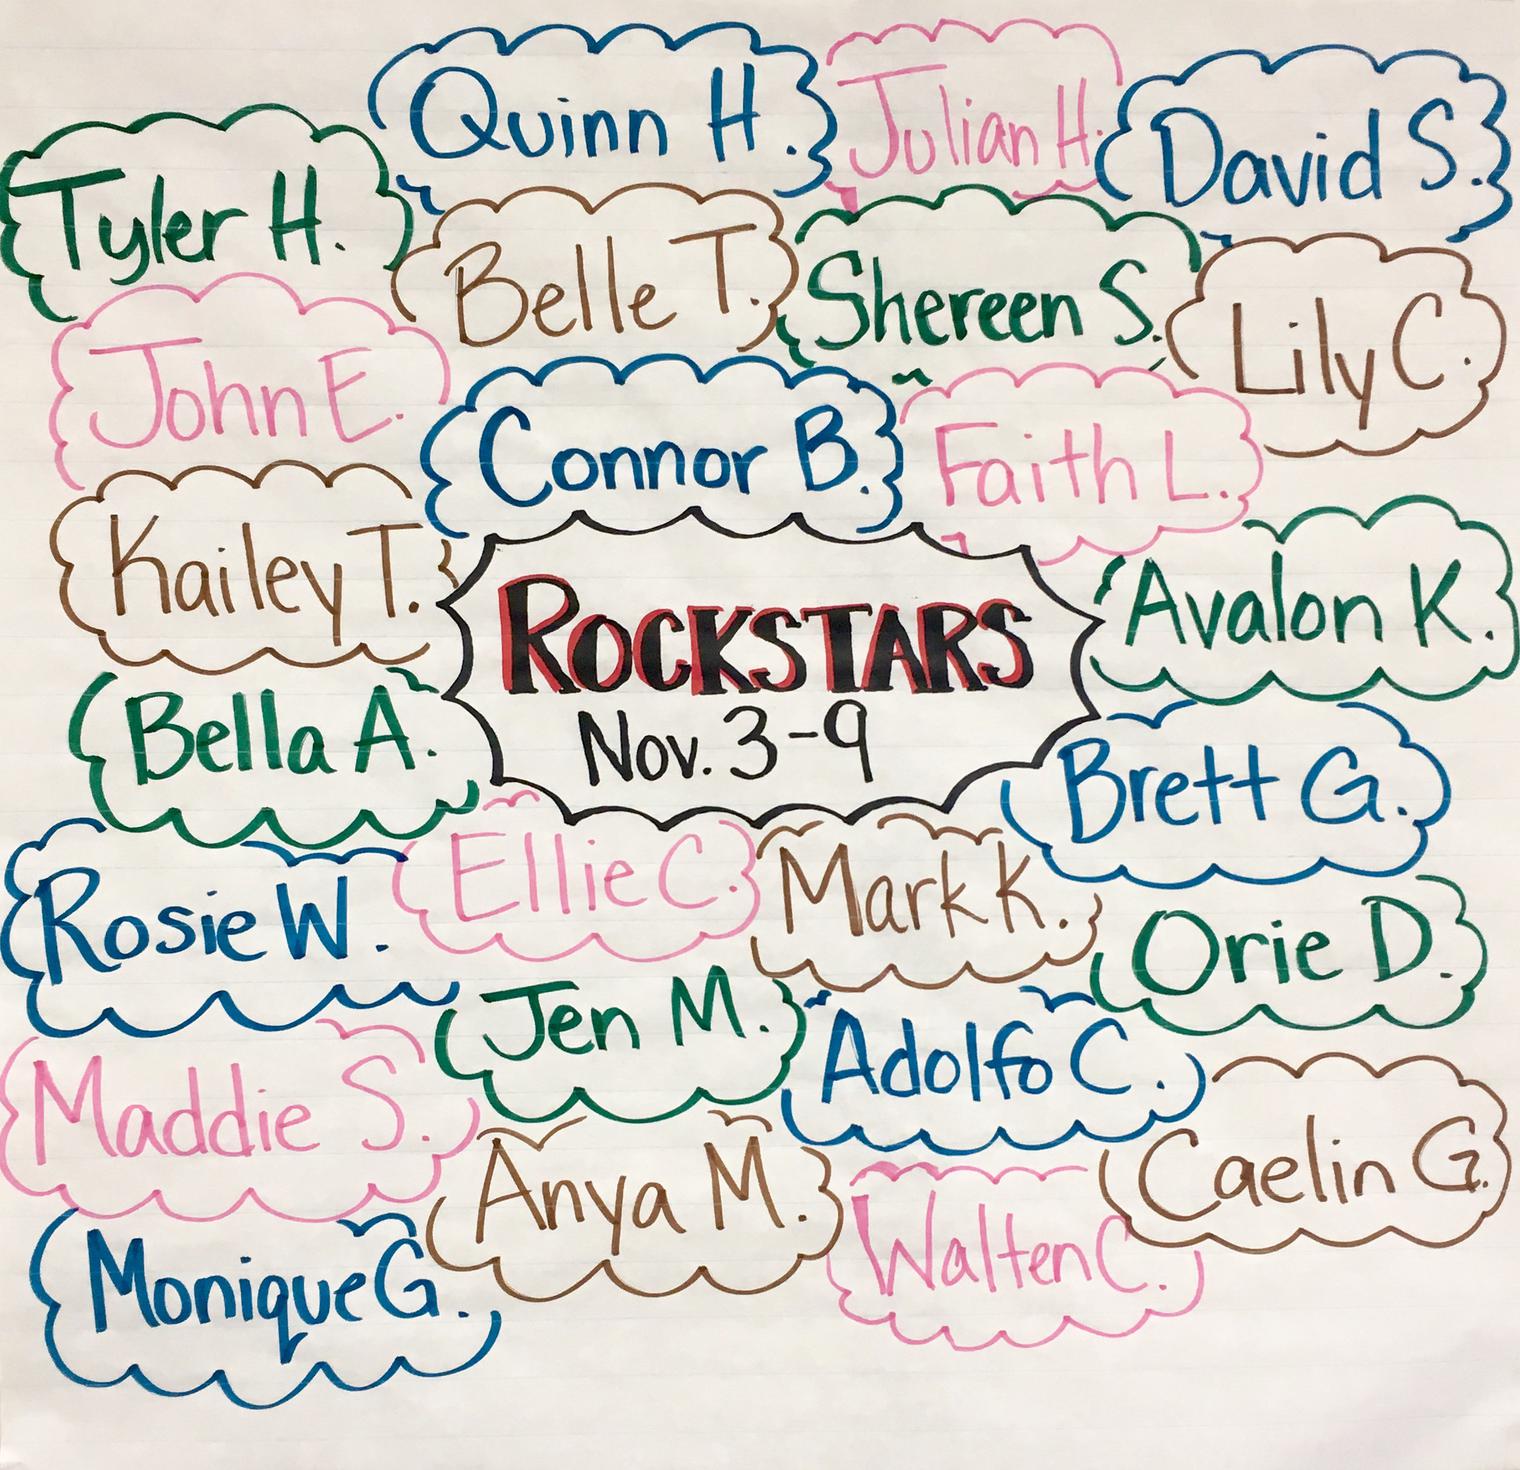 Quinn H.
Julian H.
David S.
Tyler H.
Belle T.
Shereen S.
Lily C.
John E.
Connor B.
Faith L.
Kailey T.
Avalon K.
ROCKSTARS
Nov. 3-9
Bella A.
Brett G.
Rosie W.
Ellie C.
Mark K.
Orie D.
Jen M.
Adolfo C.
Maddie S.
Anya M.
Caelin G.
Walten C.
Monique G.